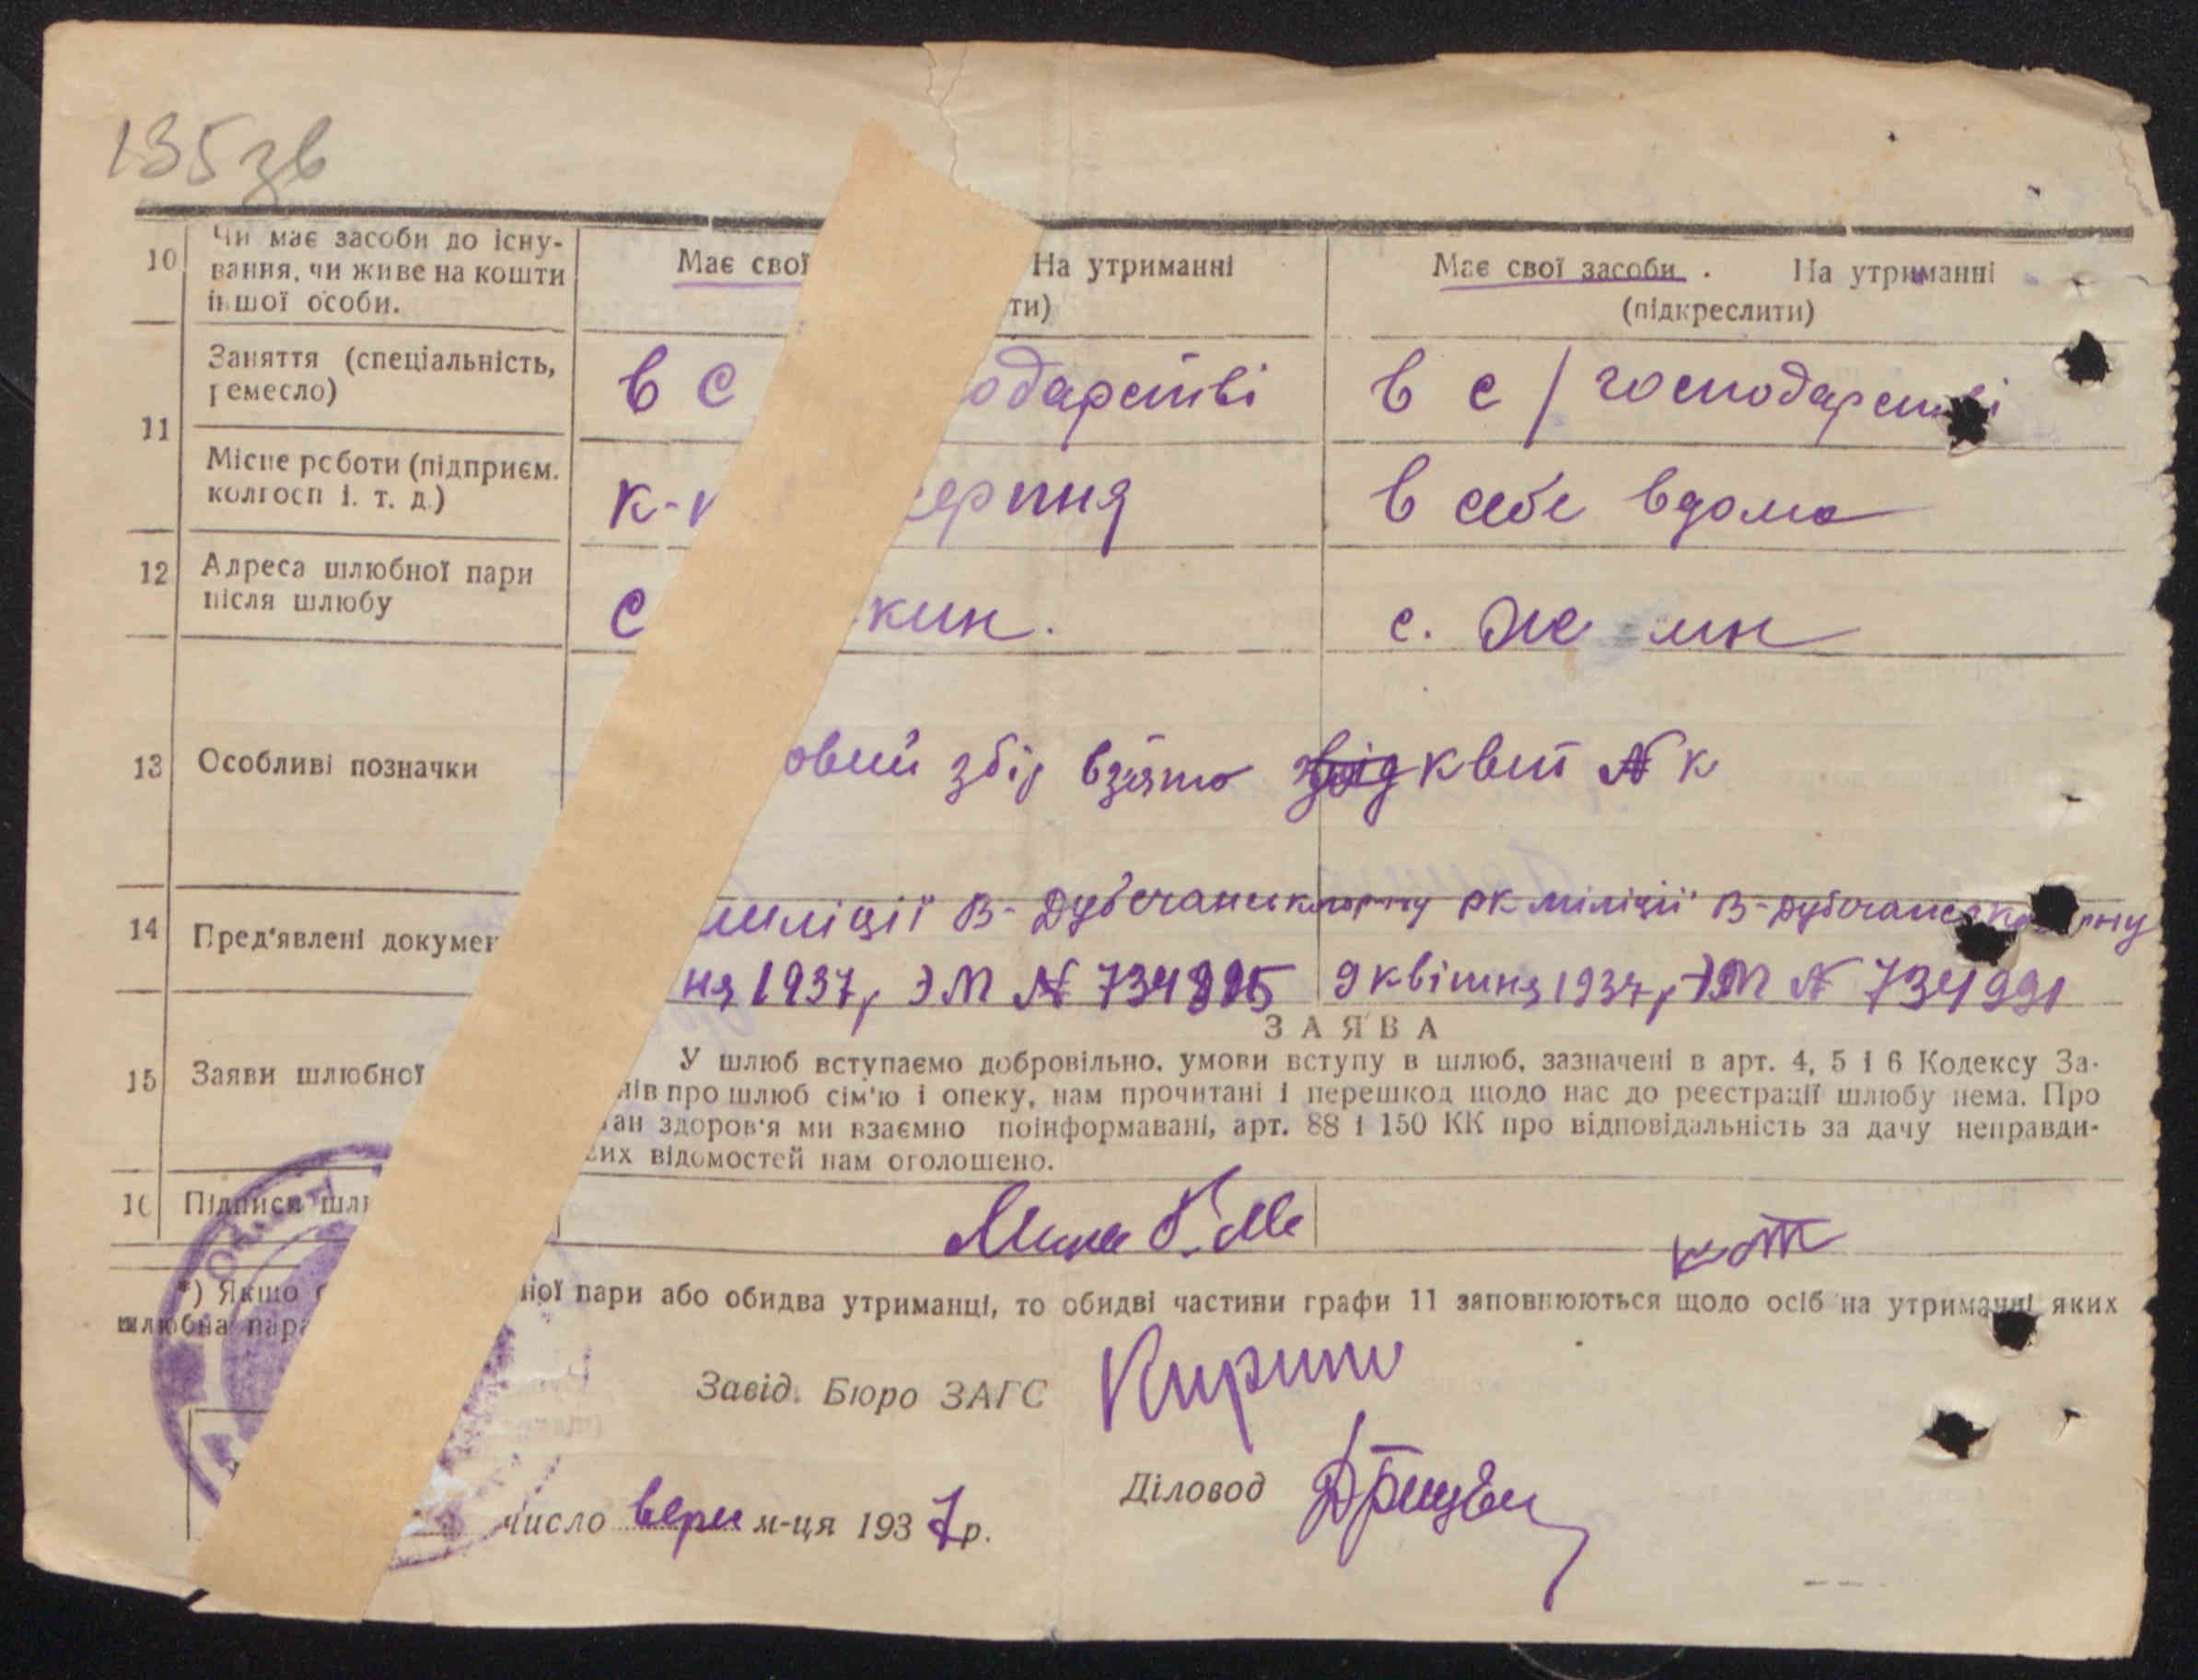 135 зв
10 Чи має засоби до існу-
вання, чи живе на кошти
іншої особи.
Має свої На утриманні
ти)
Має свої засоби . На утриманні
(підкреслити)
11 Заняття (спеціальність,
ремесло)
в с одарстві
в с / господарстві
Місце роботи (підприєм.
колгосп і. т. д.)
к- серпня
в себе вдома
12 Адреса шлюбної пари
після шлюбу
с кин.
с. Же кин
13 Особливі позначки
овий збір взято квит № к
14 Пред'явлені докумен
міліції В-Дубечанськ
ня 1937, ЭМ №
РК міліції В-Дубечансько рну
9 квітня 1937, ЭМ № 734991
15 Заяви шлюбної
ЗАЯВА
У шлюб вступаємо добровільно, умови вступу в шлюб, зазначені в арт. 4, 5 і 6 Кодексу За-
нів про шлюб сім'ю і опеку, нам прочитані і перешкод щодо нас до реєстрації шлюбу нема. Про
тан здоров'я ми взаємно поінформавані, арт. 88 і 150 КК про відповідальність за дачу неправди-
вих відомостей нам оголошено.
16 Підписи шлю
*) Якщо ної пари або обидва утриманці, то обидві частини графи 11 заповнюються щодо осіб на утриманні яких
шлюбна пара
Завід. Бюро ЗАГС
Діловод
число верес м-ця 1937 р.